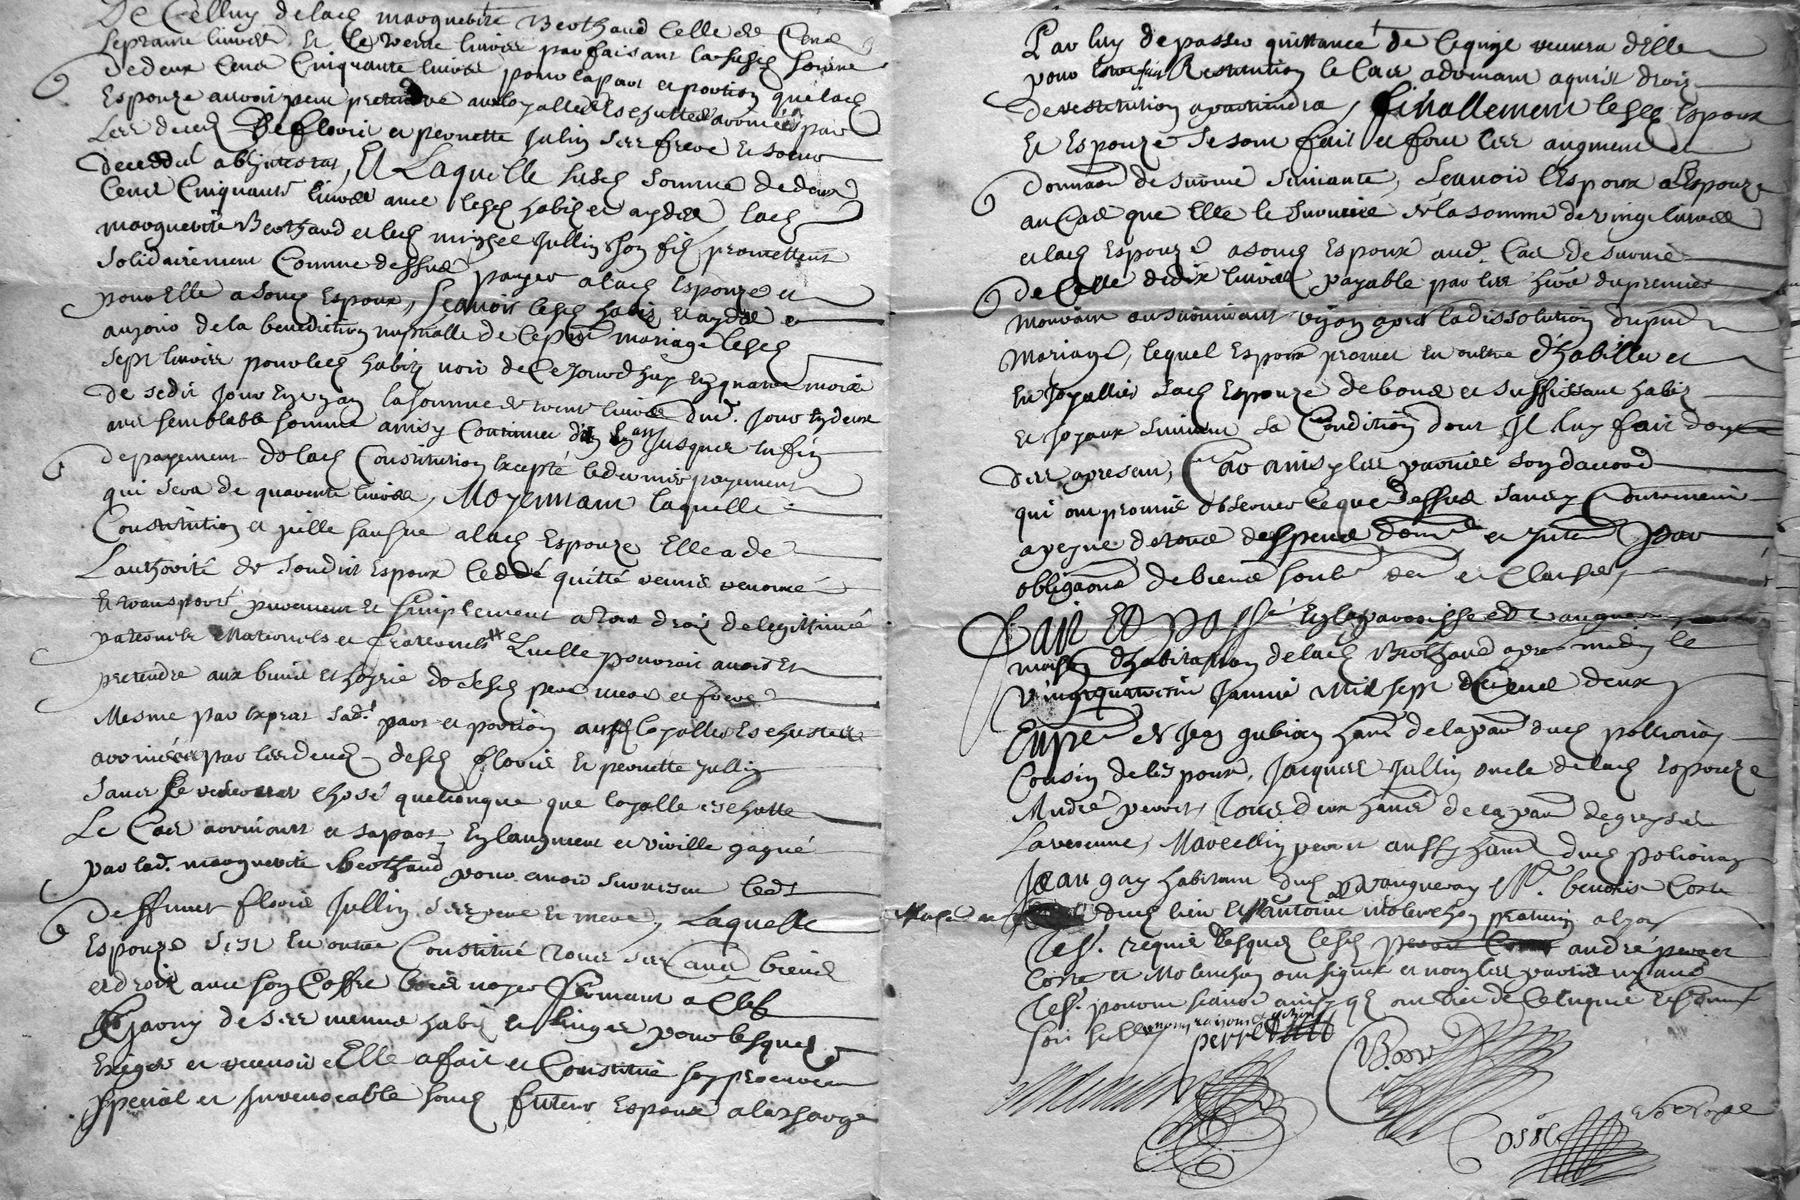 De Celluy de lad marguerite Berthaud Celle de Cent
Septante livres Et Le Reste livres parfaisant lasusd somme
de deux Cent Cinquante livres pour la part et portion que lad
Espouze auroit peu pretendre aux loyalles Escheuttes avenües par
Les deced De fleurie et pernette Julin ses frere Et soeur
deceddé abjntestat, Et Laquelle susd Somme de deux
Cent Cinquante livres avec lesd habis et aydes lad
marguerite Berthaud et led michel Jullin son fils promettent
Solidairement Comme dessus payer a lad Espouze et
pour Elle a soud Espoux, Scavoir lesd habis et aydes
au jour de la benediction nuptialle de Cepnt mariage lesd
Sept livres pour led habit noir de Ce Jourdhuy En quatre mois
de sedit Jour En un an la somme de trente livres dud. Jour En deux
ans semblable somme ainsy Continuer dan En an Jusques a fin
de payement de lad Constitution Excepté le dernier payement
qui sera de quarente livres, Moyennant laquelle
Constitution et Jcelle sauf ne a lad Espouze Elle a de
Lauthorité de Soudit Espoux ceddé quitté remis renoncé
Et transporté purement Et simplement a tous droits de legittime
paternels Maternels et fraternels Quelle pourroit avoir Et
pretendre aux biens Et hoyrie de sesd pere mere et frere
Mesme par Expres sad. part et portion ausd loyalles Escheuttes
avenües par les deced desd fleurie Et pernette Jullin
Sans se reserver chose quelconque que loyalle escheutte
Le Cas avenant et sa part En laugment et virille gagné
par lad. marguerite Berthaud pour avoir Survescu led
deffunct fleurie Jullin ses pere Et mere, Laquelle
Espouze sest En outre Constitué tous ses autres biens
et droits avec son Coffre bois noyer fermant a Clef
garny de ses menus habis Et linges pour lesquels
Exiger et recevoir Elle a fait et Constitué son procureur
special et Jrrevocable soud futur Espoux a la charge
Par luy de passer quittance de Ce quil recevra delle
pour En Estre fait Restitution le Cas advenant a qui de droit
de restitution apartiendra, Finallement lesd Espoux
Et Espouze se sont fait et font les augment et
donnaon de survie Suivante, Scavoir lEspoux a lEspouze
au Cas que Elle le Survive de la somme de vingt livres
et lad Espouze a soud Espoux aud. Cas de survie
de Celle de dix livres payable par les hers du premier
mourant au survivant un an apres la dissolution du pnt
Mariage, lequel Espoux promet En outre dhabiller et
En Joyaller sad Espouze de bons et suffissant habis
Et Joyaux suivant sa Condition dont Jl luy fait don
des apresent, Car ainsy les parties sont daccord
qui ont promis dobserver Ce que dessus sans y Contrevenir
a peyne de tous despens dom et Jnter par
obligaons de biens soub et Clauses,
Fait Et Passé En la parroisse de Vaugneray
maison dhabitation de lad Berthaud apres midy le
vingtquatre Janvier Mil sept Cent deux
En pnce de Jean gubian hant de la par dud pollionay
Cousin de lespoux, Jacques Jullin oncle de lad Espouze
André perret, tous deux hants de la par de greysieu
Lavarenne, Marcellin perret aussy hant dud polionay
Jean gay habitant dud Vaugneray Mr. benoist Coste
dud lieu Et Antoine Molenchon praticien a lyon
tesf. requis lesquels lesd André perret
Coste et Molenchon ont signé et non les parties ny autres
tesf. pour ne scavoir ainsy quil ont dit de Ce Enquis Et Somme
soit scellé
perret
Coste